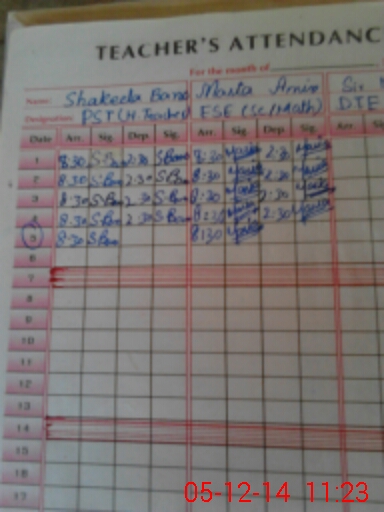 TEACHER'S ATTENDANC
For the month of
Name: Shakeela Bano Maria Amin Sir
Designation: PST (H.Teacher) ESE (Sc/Math) DTE
Date Arr. Sig. Dep. Sig. Arr. Sig. Dep. Sig. Arr
1 8.30 S.Bano 2.30 S.Bano 8:30 2.30
2 8.30 S.Bano 2.30 S.Bano 8:30 2.30
3 8.30 S.Bano 2.30 S.Bano 8:30 2.30
4 8.30 S.Bano 2.30 S.Bano 8:30 2.30
5 8.30 S.Bano 8:30
6
7
8
9
10
11
12
13
14
15
16
17
05-12-14 11:23